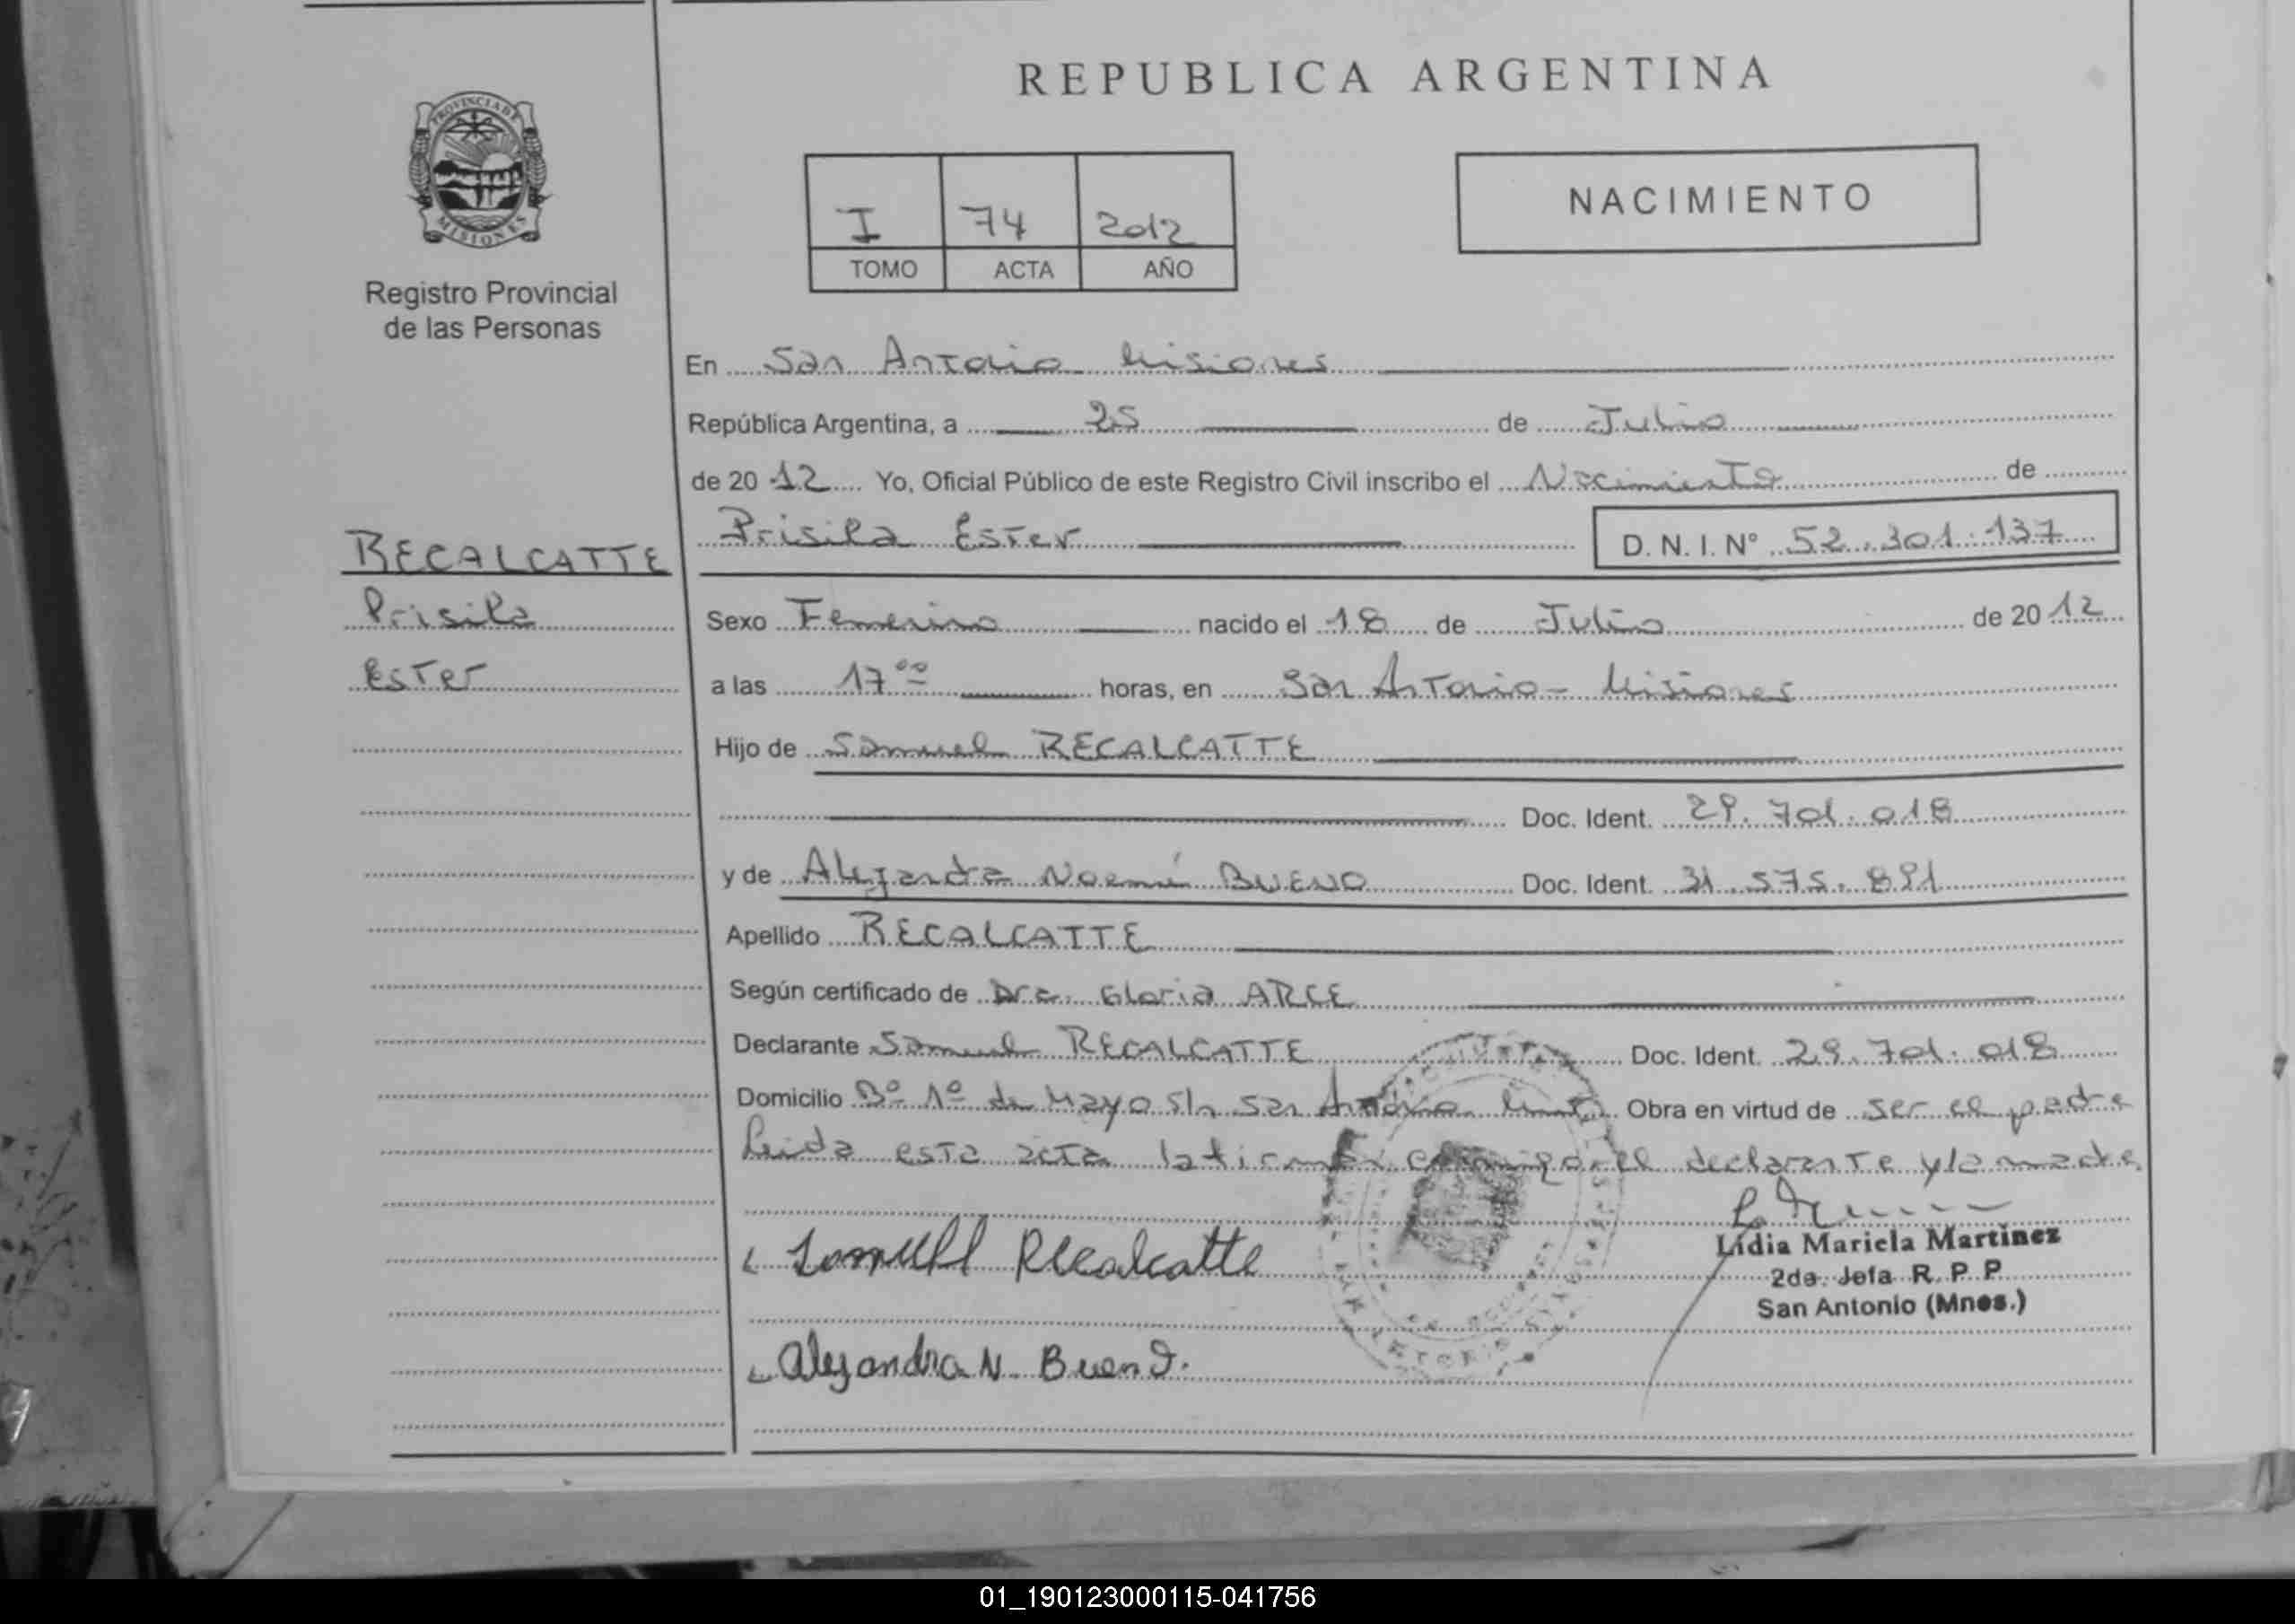 REPUBLICA ARGENTINA
PROVINCIA DE
MISIONES
Registro Provincial
de las Personas
I 74 2012
TOMO ACTA AÑO
NACIMIENTO
En San Antonio Misiones
República Argentina, a 25 de Julio
de 2012 Yo, Oficial Público de este Registro Civil inscribo el Nacimiento de
Prisila Ester D.N.I. Nº 52.301.137
RECALCATTE
Prisila
Ester
Sexo Femenino nacido el 18 de Julio de 2012
a las 17 00 horas, en San Antonio - Misiones
Hijo de Samuel RECALCATTE
Doc. Ident. 29.701.018
y de Alejandra Noemí BUENO Doc. Ident. 31.575.891
Apellido RECALCATTE
Según certificado de Dra. Gloria ARCE
Declarante Samuel RECALCATTE Doc. Ident. 29.701.018
Domicilio Bº 1º de Mayo s/n San Antonio Obra en virtud de ser el padre
Leida esta acta la firman conmigo el declarante y la madre
Samuel Recalcatte
Lidia Mariela Martinez
2da. Jefa R. P. P
San Antonio (Mnes.)
Alejandra N. Bueno.
01_190123000115-041756